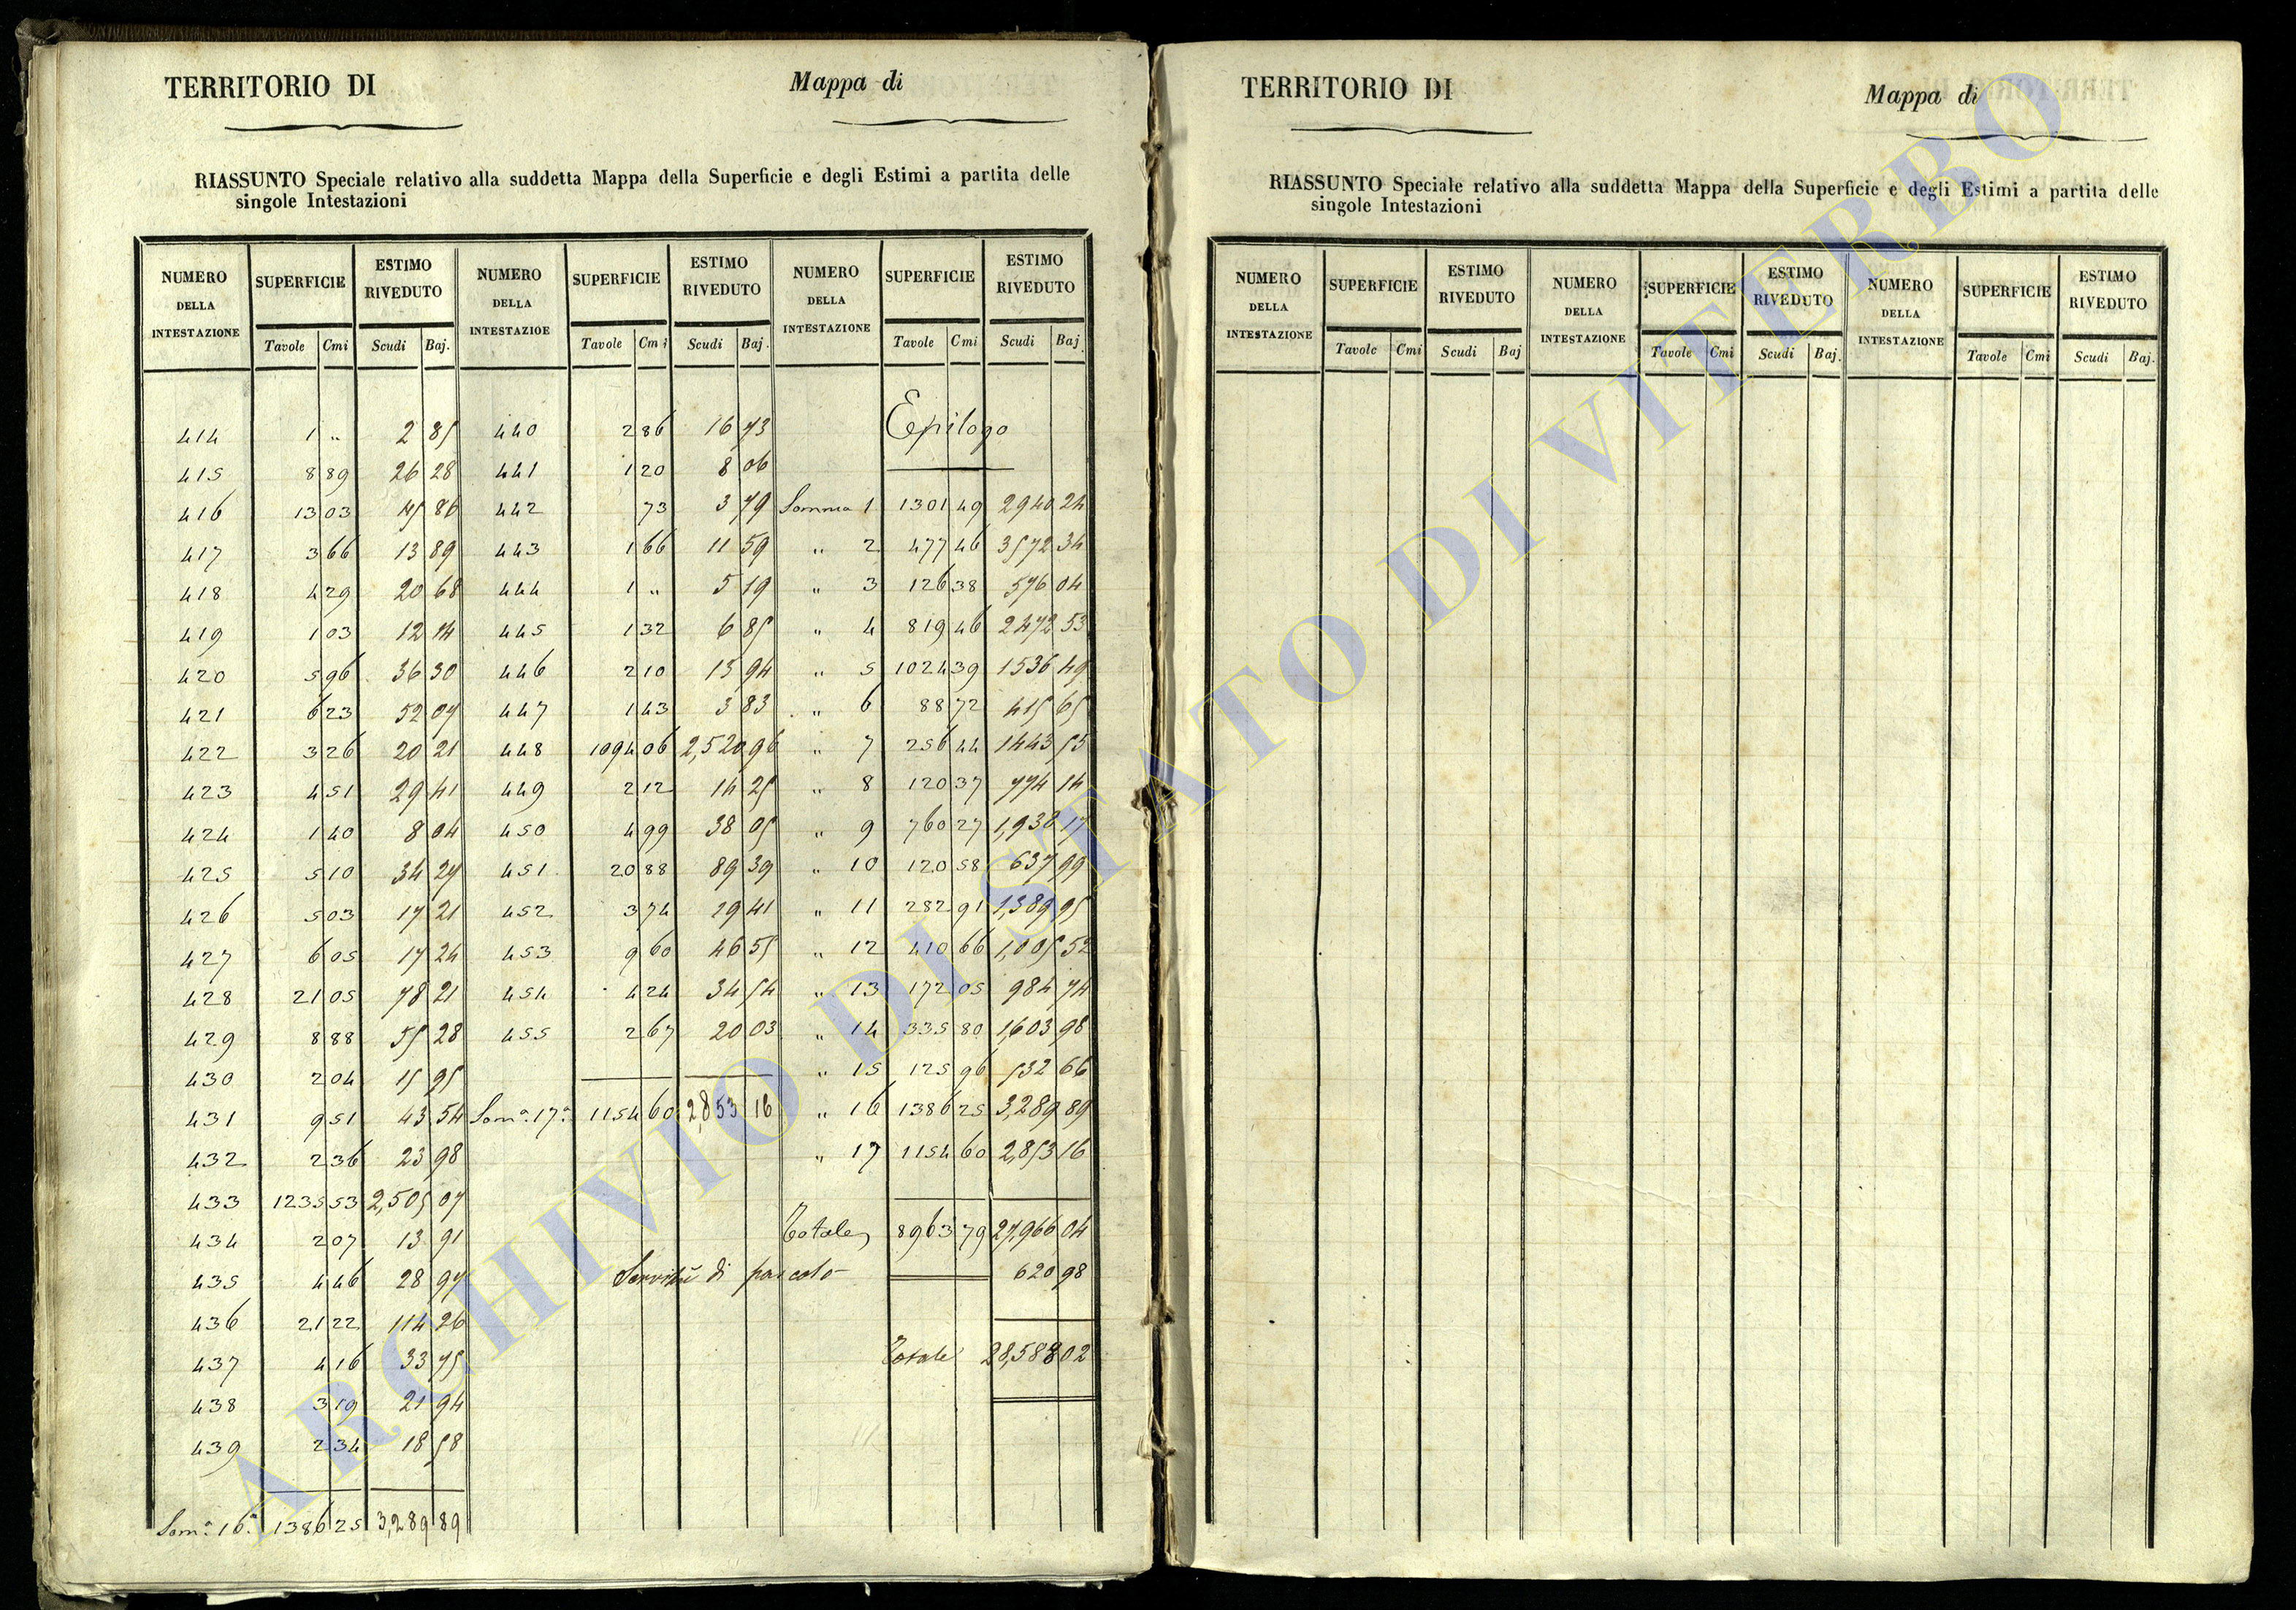 TERRITORIO DI
Mappa di
RIASSUNTO Speciale relativo alla suddetta Mappa della Superficie e degli Estimi a partita delle
singole Intestazioni
NUMERO DELLA INTESTAZIONE SUPERFICIE ESTIMO RIVEDUTO NUMERO DELLA INTESTAZIOE SUPERFICIE ESTIMO RIVEDUTO NUMERO DELLA INTESTAZIONE SUPERFICIE ESTIMO RIVEDUTO
Tavole Cmi Scudi Baj. Tavole Cmi Scudi Baj. Tavole Cmi Scudi Baj.
414 1 „ 2 85 440 2 86 16 73 Epilogo
415 8 89 26 28 441 1 20 8 06
416 13 03 45 86 442 73 3 79 Somma 1 1301 49 2940 24
417 3 66 13 89 443 1 66 11 59 „ 2 477 46 3572 34
418 4 29 20 68 444 1 „ 5 19 „ 3 126 38 576 04
419 1 03 12 14 445 1 32 6 85 „ 4 819 46 2472 53
420 5 96 36 30 446 2 10 13 94 „ 5 1024 39 1536 49
421 6 23 52 07 447 1 43 3 83 „ 6 88 72 415 65
422 3 26 20 21 448 1094 06 2,520 96 „ 7 256 44 1443 55
423 4 51 29 41 449 2 12 14 25 „ 8 120 37 774 14
424 1 40 8 04 450 4 99 38 05 „ 9 760 27 1,938 17
425 5 10 34 27 451 20 88 89 39 „ 10 120 58 637 99
426 5 03 17 21 452 3 74 19 41 „ 11 282 91 1,389 95
427 6 05 17 24 453 9 60 46 55 „ 12 410 66 1,005 52
428 21 05 78 21 454 4 24 34 54 „ 13 172 05 984 74
429 8 88 55 28 455 2 67 20 03 „ 14 335 80 1,603 98
430 2 04 15 95 „ 15 125 96 532 66
431 9 51 43 54 Som.a 17.a 1154 60 2,853 16 „ 16 1386 25 3,289 89
432 2 36 23 98 „ 17 1154 60 2,853 16
433 1235 53 2,505 07
434 2 07 13 91 Totale 8963 79 27,967 04
435 4 46 28 97 Servitù di pascolo 620 98
436 21 22 114 26
437 4 16 33 75 Totale 28,588 02
438 3 19 21 94
439 2 34 18 58
Som.a 16.a 1386 25 3,289 89
TERRITORIO DI
Mappa di
RIASSUNTO Speciale relativo alla suddetta Mappa della Superficie e degli Estimi a partita delle
singole Intestazioni
NUMERO DELLA INTESTAZIONE SUPERFICIE ESTIMO RIVEDUTO NUMERO DELLA INTESTAZIONE SUPERFICIE ESTIMO RIVEDUTO NUMERO DELLA INTESTAZIONE SUPERFICIE ESTIMO RIVEDUTO
Tavole Cmi Scudi Baj Tavole Cmi Scudi Baj. Tavole Cmi Scudi Baj.
ARCHIVIO DI STATO DI VITERBO